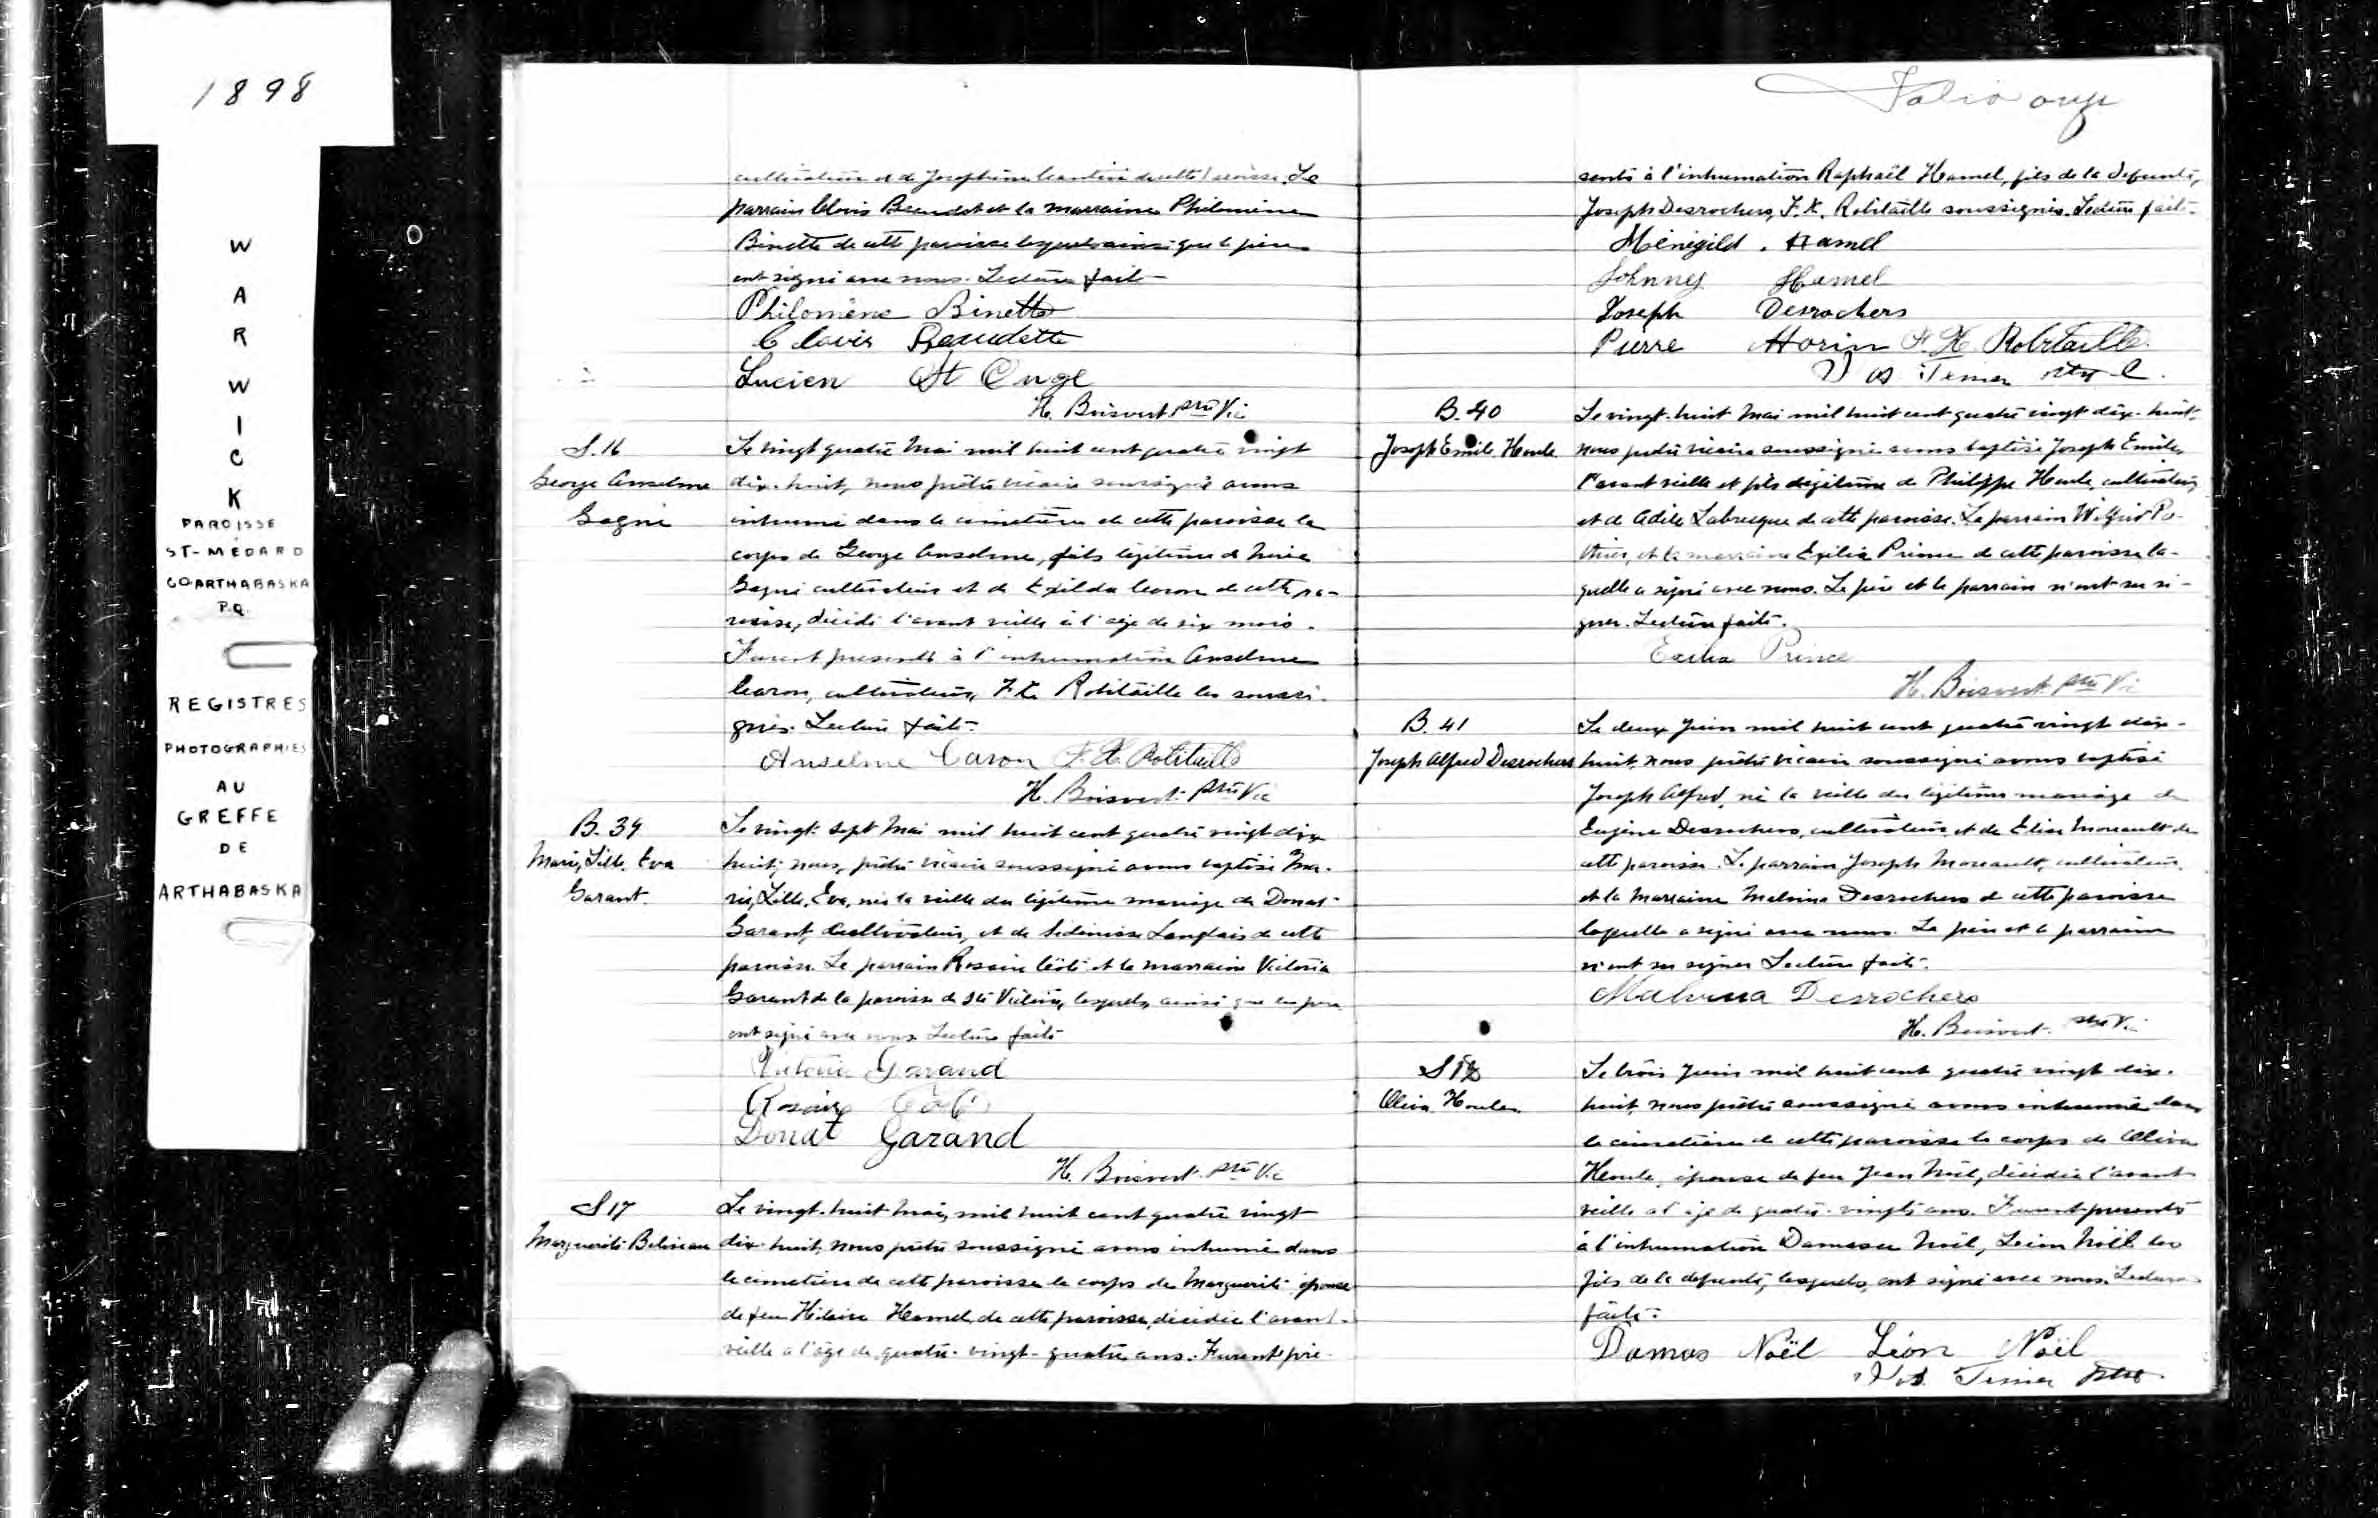 1898
WARWICK
PAROISSE
ST-MÉDARD
CO ARTHABASKA
P.Q.
REGISTRES
PHOTOGRAPHIES
AU
GREFFE
DE
ARTHABASKA
cultivateur et de Josephine de cette paroisse. Le
parrain Clovis Beaudet et la marraine Philomène
Binette de cette paroisse lesquels ainsi que le père
ont signé avec nous. Lecture faite
Philomène Binette
Clovis Beaudette
Lucien St Onge
H. Boisvert ptre Vic
S. 16
George Anselme
Gagné
Le vingt quatre Mai mil huit cent quatre vingt
dix-huit, nous prêtre vicaire soussigné avons
inhumé dans le cimetière de cette paroisse le
corps de George Anselme, fils légitime de
Gagné cultivateur et de Exilda Caron de cette pa-
roisse, décédé l'avant veille à l'age de six mois.
Furent présents à l'inhumation Anselme
Caron, cultivateur, F. X. Robitaille les soussi-
gnés. Lecture faite.
Anselme Caron F. X. Robitaille
H. Boisvert ptre Vic
B. 39
Marie, Lille, Eva
Garant.
Le vingt-sept Mai mil huit cent quatre vingt dix
huit, nous, prêtre vicaire soussigné avons baptisé Ma-
rie, Lille, Eva, née la veille du légitime mariage de Donat
Garant, cultivateur, et de Langlais de cette
paroisse. Le parrain Rosaire Côté et la marraine Victoria
Garant de la paroisse de Ste Victoire, lesquels, ainsi que le père
ont signé avec nous Lecture faite
Victoria Garand
Rosaire Coté
Donat Garand
H. Boisvert ptre Vic
S 17
Marguerite Beliveau
Le vingt-huit Mai, mil huit cent quatre vingt
dix-huit, nous prêtre soussigné avons inhumé dans
le cimetière de cette paroisse le corps de Marguerite épouse
de feu Hilaire Hamel, de cette paroisse, décédée l'avant-
veille a l'âge de quatre-vingt-quatre ans. Furent pré-
Folio onze
sents à l'inhumation Raphaël Hamel, fils de la défunte,
Joseph Desrochers, F. X. Robitaille soussignés. Lecture faite.
Ménégild. Hamel
Johnney Hamel
Joseph Desrochers
Pierre Morin F. X. Robitaille
Tessier
B. 40
Joseph Emile Houle
Le vingt-huit Mai mil huit cent quatre vingt dix-huit
nous prêtre vicaire soussigné avons baptisé Joseph Emile,
l'avant veille et fils légitime de Philippe Houle, cultivateur,
et de Adèle Labrecque de cette paroisse. Le parrain Wilfrid Po-
thier, et la marraine Exilia Prince de cette paroisse la-
quelle a signé avec nous. Le père et le parrain n'ont su si-
gner. Lecture faite.
Exilia Prince
H. Boisvert ptre Vic
B. 41
Joseph Alfred Desrochers
Le deux Juin mil huit cent quatre vingt dix-
huit, nous prêtre vicaire soussigné avons baptisé
Joseph Alfred, né la veille du légitime mariage de
Eugène Desrochers, cultivateur et de Elise Moreault de
cette paroisse. Le parrain Joseph Moreault, cultivateur
et la Marraine Malvina Desrochers de cette paroisse
laquelle a signé avec nous. Le père et le parrain
n'ont su signer Lecture faite.
Malvina Desrochers
H. Boisvert ptre Vic
S 18
Oliva Houle
Le trois Juin mil huit cent quatre vingt dix-
huit nous prêtre soussigné avons inhumé dans
le cimetière de cette paroisse le corps de Oliva
Houle, épouse de feu Jean Noël, décédée l'avant
veille a l'age de quatre-vingts ans. Furent présents
à l'inhumation Damase Noël, Léon Noël les
fils de la défunte, lesquels, ont signé avec nous. Lecture
faite.
Damas Noël Léon Noël
Tessier ptre